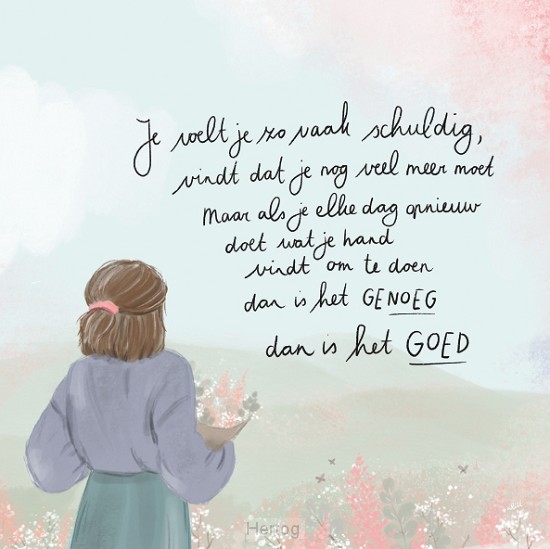 Je voelt je zo vaak schuldig,
vindt dat je nog veel meer moet
Maar als je elke dag opnieuw
doet wat je hand
vindt om te doen
dan is het GENOEG
dan is het GOED
Hertog